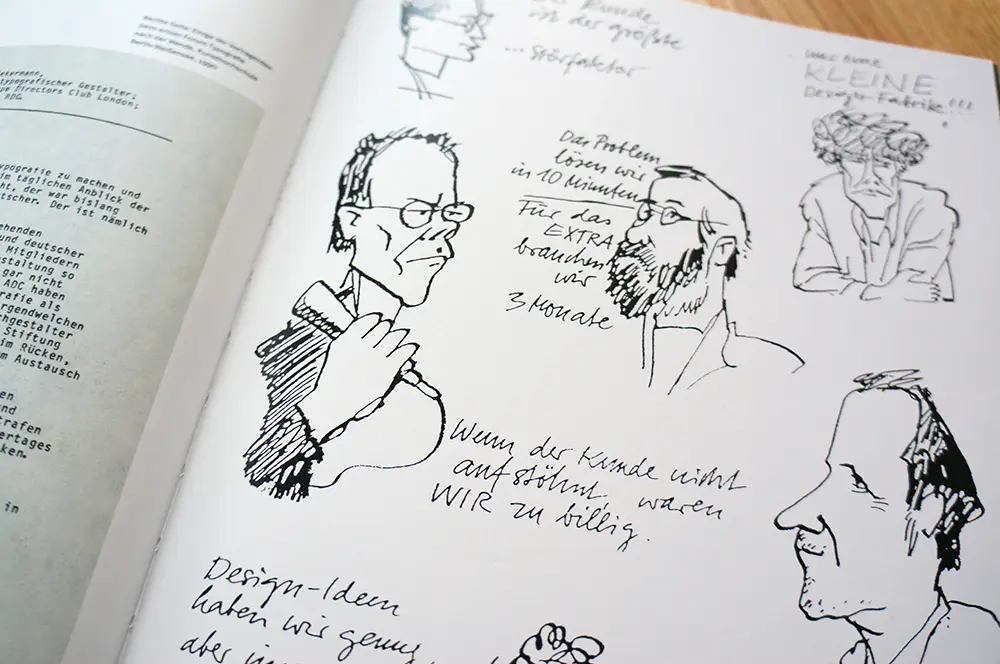 nach der Wende, Kunsthochschule
Berlin-Weißensee, 1990
typografischer Gestalter;
Directors Club London;
ADG
ypografie zu machen und
im täglichen Anblick der
ht, der war bislang
utscher. Der ist nämlich
ehenden
und deutscher
Mitgliedern
estaltung so
gar nicht
ADC haben
rafie als
rgendwelchen
chgestalter
Stiftung
im Rücken,
m Austausch
en
und
trafen
ertages
ken.
in
Kunde
ist der größte
... Störfaktor
KLEINE
Design-Fabrik!!!
Das Problem
lösen wir
in 10 Minuten
Für das
EXTRA
brauchen
wir
3 Monate
Wenn der Kunde nicht
aufstöhnt, waren
WIR zu billig.
Design-Ideen
haben wir genug
aber